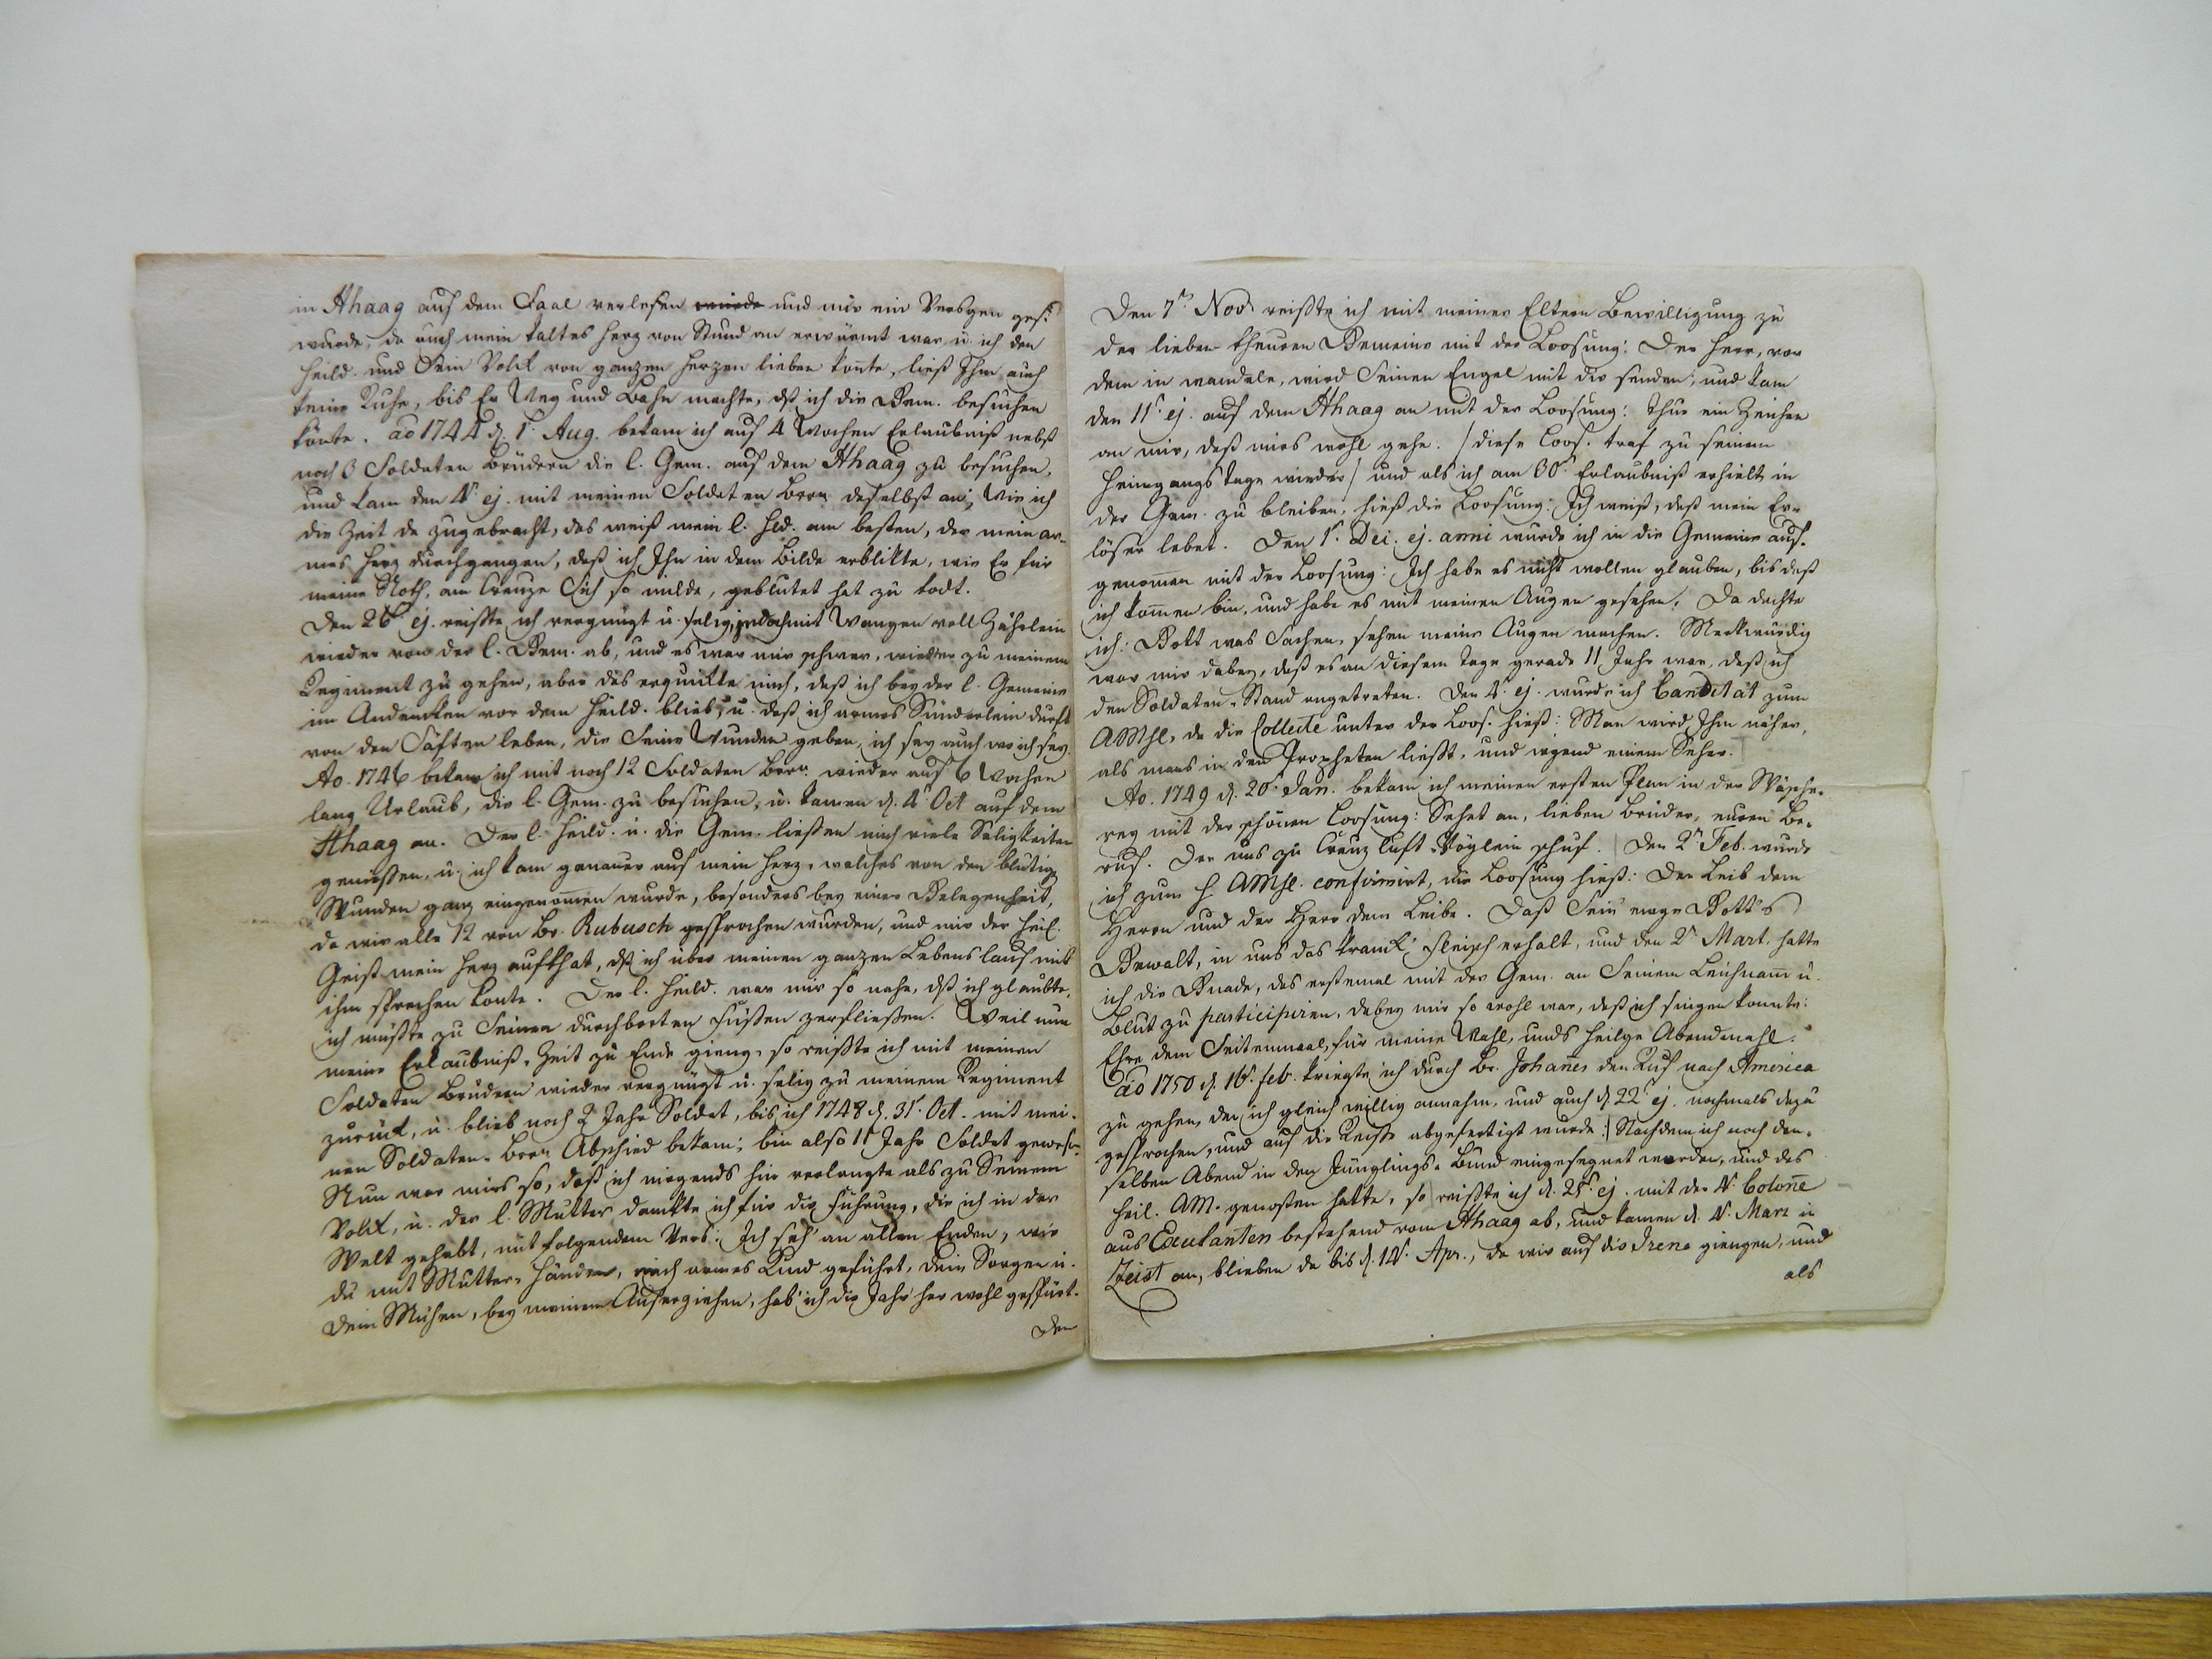 in Hhaag auf dem Saal verlesen wurde und mir ein Versgen ges.
wurde, da auch mein kaltes Herz von Stund an erwärmt war u. ich den
Heild. und Sein Volck von ganzem Herzen lieben konte, ließ Ihm auch
keine Ruhe, bis Er Weg und Bahn machte, dß ich die Gem. besuchen
könte. ao 1744 d. 1t. Aug. bekam ich auf 4 Wochen Erlaubniß nebst
noch 3 Soldaten Brüdern die l. Gem. auf dem Hhaag zu besuchen,
und kam den 4t ej. mit meinen Soldaten Brrn daselbst an; Wie ich
die Zeit da zugebracht, das weiß mein l. Hld. am besten, der mein ar-
mes Herz durchgangen, daß ich Ihn in dem Bilde erblikte, wie Er für
meine Noth, am Creuze Sich so milde, geblutet hat zu todt.
Den 26t ej. reißte ich vergnügt u. selig, jedoch mit Wangen voll Zährlein
wieder von der l. Gem. ab, und es war mir schwer, wieder zu meinem
Regiment zu gehen, aber das erquikte mich, daß ich bey der l. Gemeine
im Andencken vor dem Heild. blieb, u. daß ich armes Sünderlein durft
von den Säften leben, die Seine Wunden geben, ich sey auch wo ich sey.
Ao. 1746 bekam ich mit noch 12 Soldaten Brrn. wieder auf 6 Wochen
lang Urlaub, die l. Gem. zu besuchen, u. kamen d. 4t Oct auf dem
Hhaag an. Der l. Heild. u. die Gem. ließen mich viele Seligkeiten
genießen, u. ich kam genauer auf mein Herz, welches von den blutigen
Wunden ganz eingenommen wurde, besonders bey einer Gelegenheit,
da wir alle 12 von Br. Rubusch gesprochen wurden, und mir der Heil.
Geist mein Herz aufthat, dß ich über meinen ganzen Lebenslauf mit
ihm sprechen konte. Der l. Heild. war mir so nahe, dß ich glaubte,
ich müßte zu Seinen durchborten Füßen zerfließen. Weil nun
meine Erlaubniß-Zeit zu Ende gieng, so reißte ich mit meinen
Soldaten Brüdern wieder vergnügt u. selig zu meinem Regiment
zurück, u. blieb noch 2 Jahr Soldat, bis ich 1748 d. 31t. Oct. mit mei-
nen Soldaten-Brrn Abschied bekam; bin also 11 Jahr Soldat gewesen.
Nun war mirs so, daß ich nirgends hin verlangte als zu Seinem
Volck, u. der l. Mutter danckte ich für die Führung, die ich in der
Welt gehabt, mit folgendem Vers: Ich seh' an allen Enden, wie
du mit Mutter-Händen, mich armes Kind geführt, dein Sorgen u.
dein Mühen, bey meinem Auferziehen, hab' ich die Jahr her wohl gespürt.
Den
Den 7t. Nov. reißte ich mit meiner Eltern Bewilligung zu
der lieben theuren Gemeine mit der Loosung: Der Herr, vor
dem ich wandele, wird Seinen Engel mit dir senden; und kam
den 11t. ej. auf dem Hhaag an mit der Loosung: Thue ein Zeichen
an mir, daß mirs wohl gehe. /diese Loos. traf zu seinem
Heimgangs tage wieder/ und als ich am 30t. Erlaubniß erhielt in
der Gem. zu bleiben, hieß die Loosung: Ich weiß, daß mein Er-
löser lebet. Den 1t. Dec. ej. anni wurde ich in die Gemeine auf-
genommen mit der Loosung: Ich habe es nicht wollen glauben, bis daß
ich kommen bin, und habe es mit meinen Augen gesehen. Da dachte
ich: Gott was Sachen, sehen meine Augen machen. Merkwürdig
war mir dabey, daß es an diesem Tage gerade 11 Jahr war, daß ich
den Soldaten-Stand angetreten. Den 4t. ej. wurde ich Canditat zum
AMhl, da die Collecte unter der Loos. hieß: Man wird Ihm näher,
als mans in den Propheten ließt, und irgend einem Seher.
Ao. 1749 d. 20t. Jan. bekam ich meinen ersten Plan in der Wäsche-
rey mit der schönen Loosung: Sehet an, lieben Brüder, euren Be-
ruf. Der uns zu Creuz luft Vöglein schuf. Den 2t. Feb. wurde
ich zum H. AMhl. confirmirt, die Loosung hieß: Der Leib dem
Herrn und der Herr dem Leibe. Daß Sein ewge Gott's
Gewalt, in uns das kranck' Fleisch erhalt, und den 2t Mart. hatte
ich die Gnade, das erstemal mit der Gem. an Seinem Leichnam u.
Blut zu participiren, dabey mir so wohl war, daß ich singen konnte:
Ehre dem Seitenmaal, für meine Wahl, unds heilge Abendmahl.
ao 1750 d. 16t. feb. kriegte ich durch Br. Johannes den Ruf nach America
zu gehen, den ich gleich willig annahm, und auch d. 22t ej. nochmals dazu
gesprochen, und auf die Reise abgefertigt wurde. Nachdem ich noch den-
selben Abend in den Jünglings-Bund eingesegnet worden, und das
Heil. AM. genoßen hatte, so reißte ich d. 25t. ej. mit der 4t. Colonne
aus Exulanten bestehend vom Hhaag ab, und kamen d. 4t. Marz in
Zeist an, blieben da bis d. 12t. Apr., da wir auf die Irene giengen, und
als